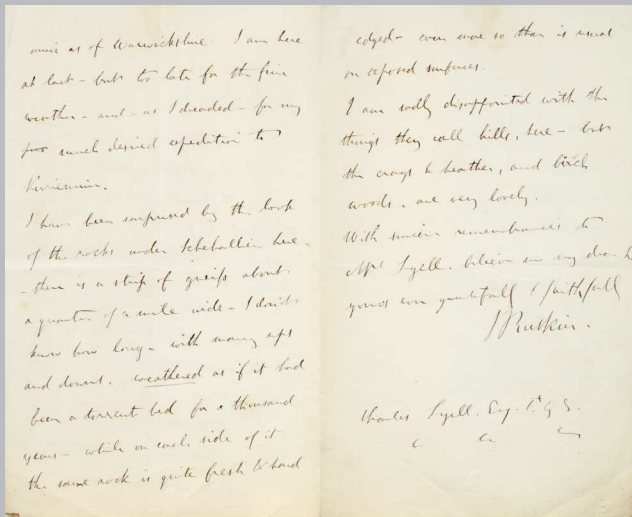 as of Warwickshire. I am here
at last - but too late for the fine
weather - and - as I dreaded - for my
much desired expedition to
Kinnordie.
I have been surprised by the look
of the rocks under Schehallien here -
- there is a strip of gneiss about
a quarter of a mile wide - I don't
know how long - with many ups
and downs. weathered as if it had
been a torrent bed for a thousand
years - while on each side of it
the same rock is quite fresh & hard
edged - even more so than is usual
on exposed surfaces.
I am sadly disappointed with the
things they call hills, here - but
the crags & heather, and birch
woods, are very lovely.
With sincere remembrances to
Mrs Lyell. believe me my dear
yours ever gratefully & faithfully
JRuskin.
Charles Lyell. Esq. F.G.S.